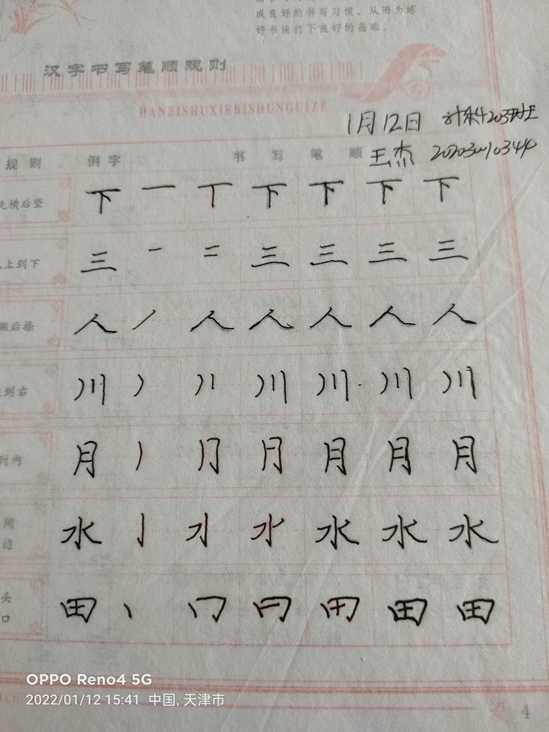 成良好的书写习惯，从而为练
好书法打下良好的基础。
汉字书写笔顺规则
HANZISHUXIEBISHUNGUIZE
1月12日 计科203班
规则 例字 书写笔顺 王杰
先横后竖 下 一 丅 下 下 下 下
上到下 三 一 二 三 三 三 三
撇后捺 人 丿 人 人 人 人 人
到右 川 丿 川 川 川 川
到内 月 丿 月 月 月 月
间 水 亅 水 水 水
边
头 田 丨 冂 田 田 田
口
4
OPPO Reno4 5G
2022/01/12 15:41 中国, 天津市